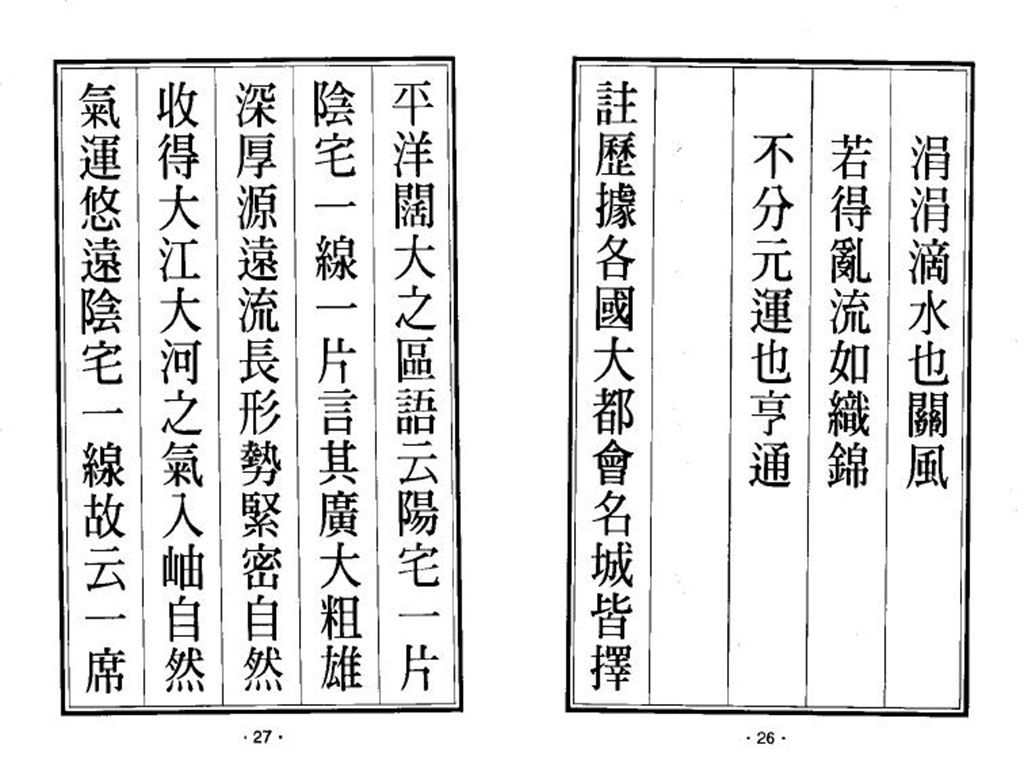 涓涓滴水也關風
若得亂流如織錦
不分元運也亨通
註歷據各國大都會名城皆擇
·26·
平洋闊大之區語云陽宅一片
陰宅一線一片言其廣大粗雄
深厚源遠流長形勢緊密自然
收得大江大河之氣入岫自然
氣運悠遠陰宅一線故云一席
·27·